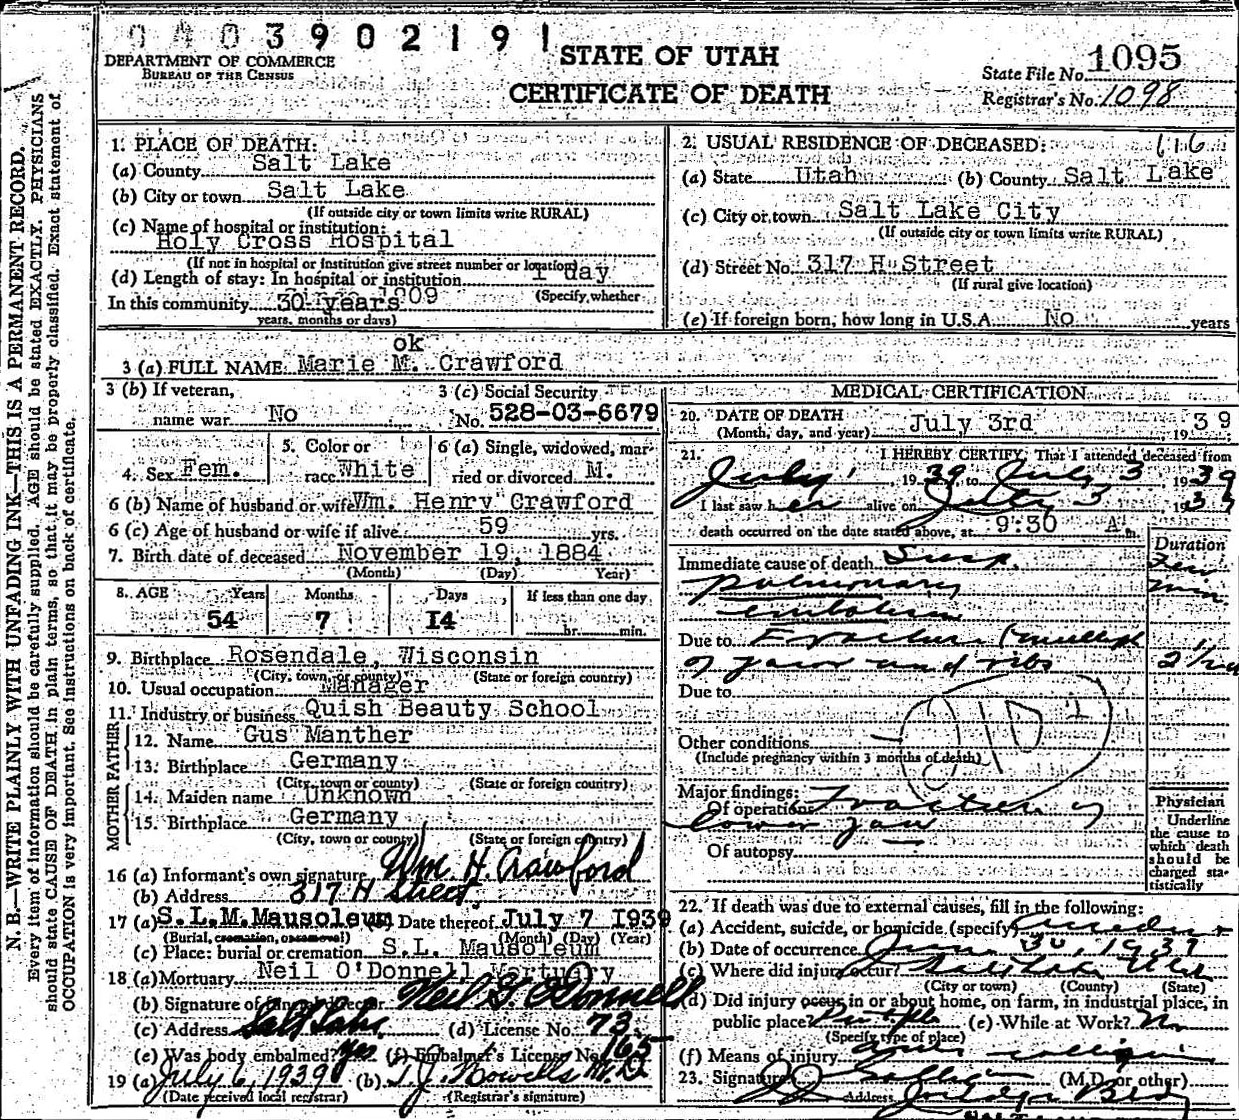 3902191
DEPARTMENT OF COMMERCE
BUREAU OF THE CENSUS
STATE OF UTAH
CERTIFICATE OF DEATH
State File No. 1095
Registrar's No. 1098
N. B.—WRITE PLAINLY WITH UNFADING INK—THIS IS A PERMANENT RECORD.
Every item of information should be carefully supplied. AGE should be stated EXACTLY. PHYSICIANS
should state CAUSE OF DEATH in plain terms, so that it may be properly classified. Exact statement of
OCCUPATION is very important. See instructions on back of certificate.
1. PLACE OF DEATH:
(a) County Salt Lake
(b) City or town Salt Lake
(If outside city or town limits write RURAL)
(c) Name of hospital or institution:
Holy Cross Hospital
(If not in hospital or institution give street number or location)
(d) Length of stay: In hospital or institution 1 day
In this community 30 years 1909 (Specify whether
years, months or days)
2. USUAL RESIDENCE OF DECEASED: 116
(a) State Utah (b) County Salt Lake
(c) City or town Salt Lake City
(If outside city or town limits write RURAL)
(d) Street No. 317 H Street
(If rural give location)
(e) If foreign born, how long in U.S.A. No years
ok
3 (a) FULL NAME Marie M. Crawford
3 (b) If veteran,
name war No
3 (c) Social Security
No. 528-03-6679
4. Sex Fem.
5. Color or
race White
6 (a) Single, widowed, mar-
ried or divorced M.
6 (b) Name of husband or wife Wm. Henry Crawford
6 (c) Age of husband or wife if alive 59 yrs.
7. Birth date of deceased November 19, 1884
(Month) (Day) (Year)
8. AGE Years Months Days If less than one day
54 7 14 hr. min.
9. Birthplace Rosendale, Wisconsin
(City, town, or county) (State or foreign country)
10. Usual occupation Manager
11. Industry or business Quish Beauty School
FATHER
12. Name Gus Manther
13. Birthplace Germany
(City, town or county) (State or foreign country)
MOTHER
14. Maiden name Unknown
15. Birthplace Germany
(City, town or county) (State or foreign country)
16 (a) Informant's own signature Wm. H. Crawford
(b) Address 317 H Street
17 (a) S.L.M. Mausoleum (b) Date thereof July 7 1939
(Burial, cremation, or removal) (Month) (Day) (Year)
(c) Place: burial or cremation S.L. Mausoleum
18 (a) Mortuary Neil O'Donnell Mortuary
(b) Signature of funeral director Neil G. O'Donnell
(c) Address Salt Lake (d) License No. 73
(e) Was body embalmed? Yes (f) Embalmer's License No. 165
19 (a) July 6, 1939 (b) T. J. Howells M.D.
(Date received local registrar) (Registrar's signature)
MEDICAL CERTIFICATION
20. DATE OF DEATH
(Month, day, and year) July 3rd 1939
21. I HEREBY CERTIFY, That I attended deceased from
July 1, 1939 to July 3 1939
I last saw her alive on July 3 1939
death occurred on the date stated above, at 9:30 A.m.
Duration
Immediate cause of death Susp. Few
pulmonary min.
embolism
Due to Fracture (multiple
of jaw and ribs
Due to
Other conditions
(Include pregnancy within 3 months of death)
Major findings:
Of operations Fracture of
lower jaw
Of autopsy
Physician
Underline
the cause to
which death
should be
charged sta-
tistically
22. If death was due to external causes, fill in the following:
(a) Accident, suicide, or homicide (specify) Accident
(b) Date of occurrence June 30, 1939
(c) Where did injury occur? Salt Lake Utah
(City or town) (County) (State)
(d) Did injury occur in or about home, on farm, in industrial place, in
public place? (e) While at Work? No
(Specify type of place)
(f) Means of injury Auto collision
23. Signature (M.D. or other)
Address Judge Bldg